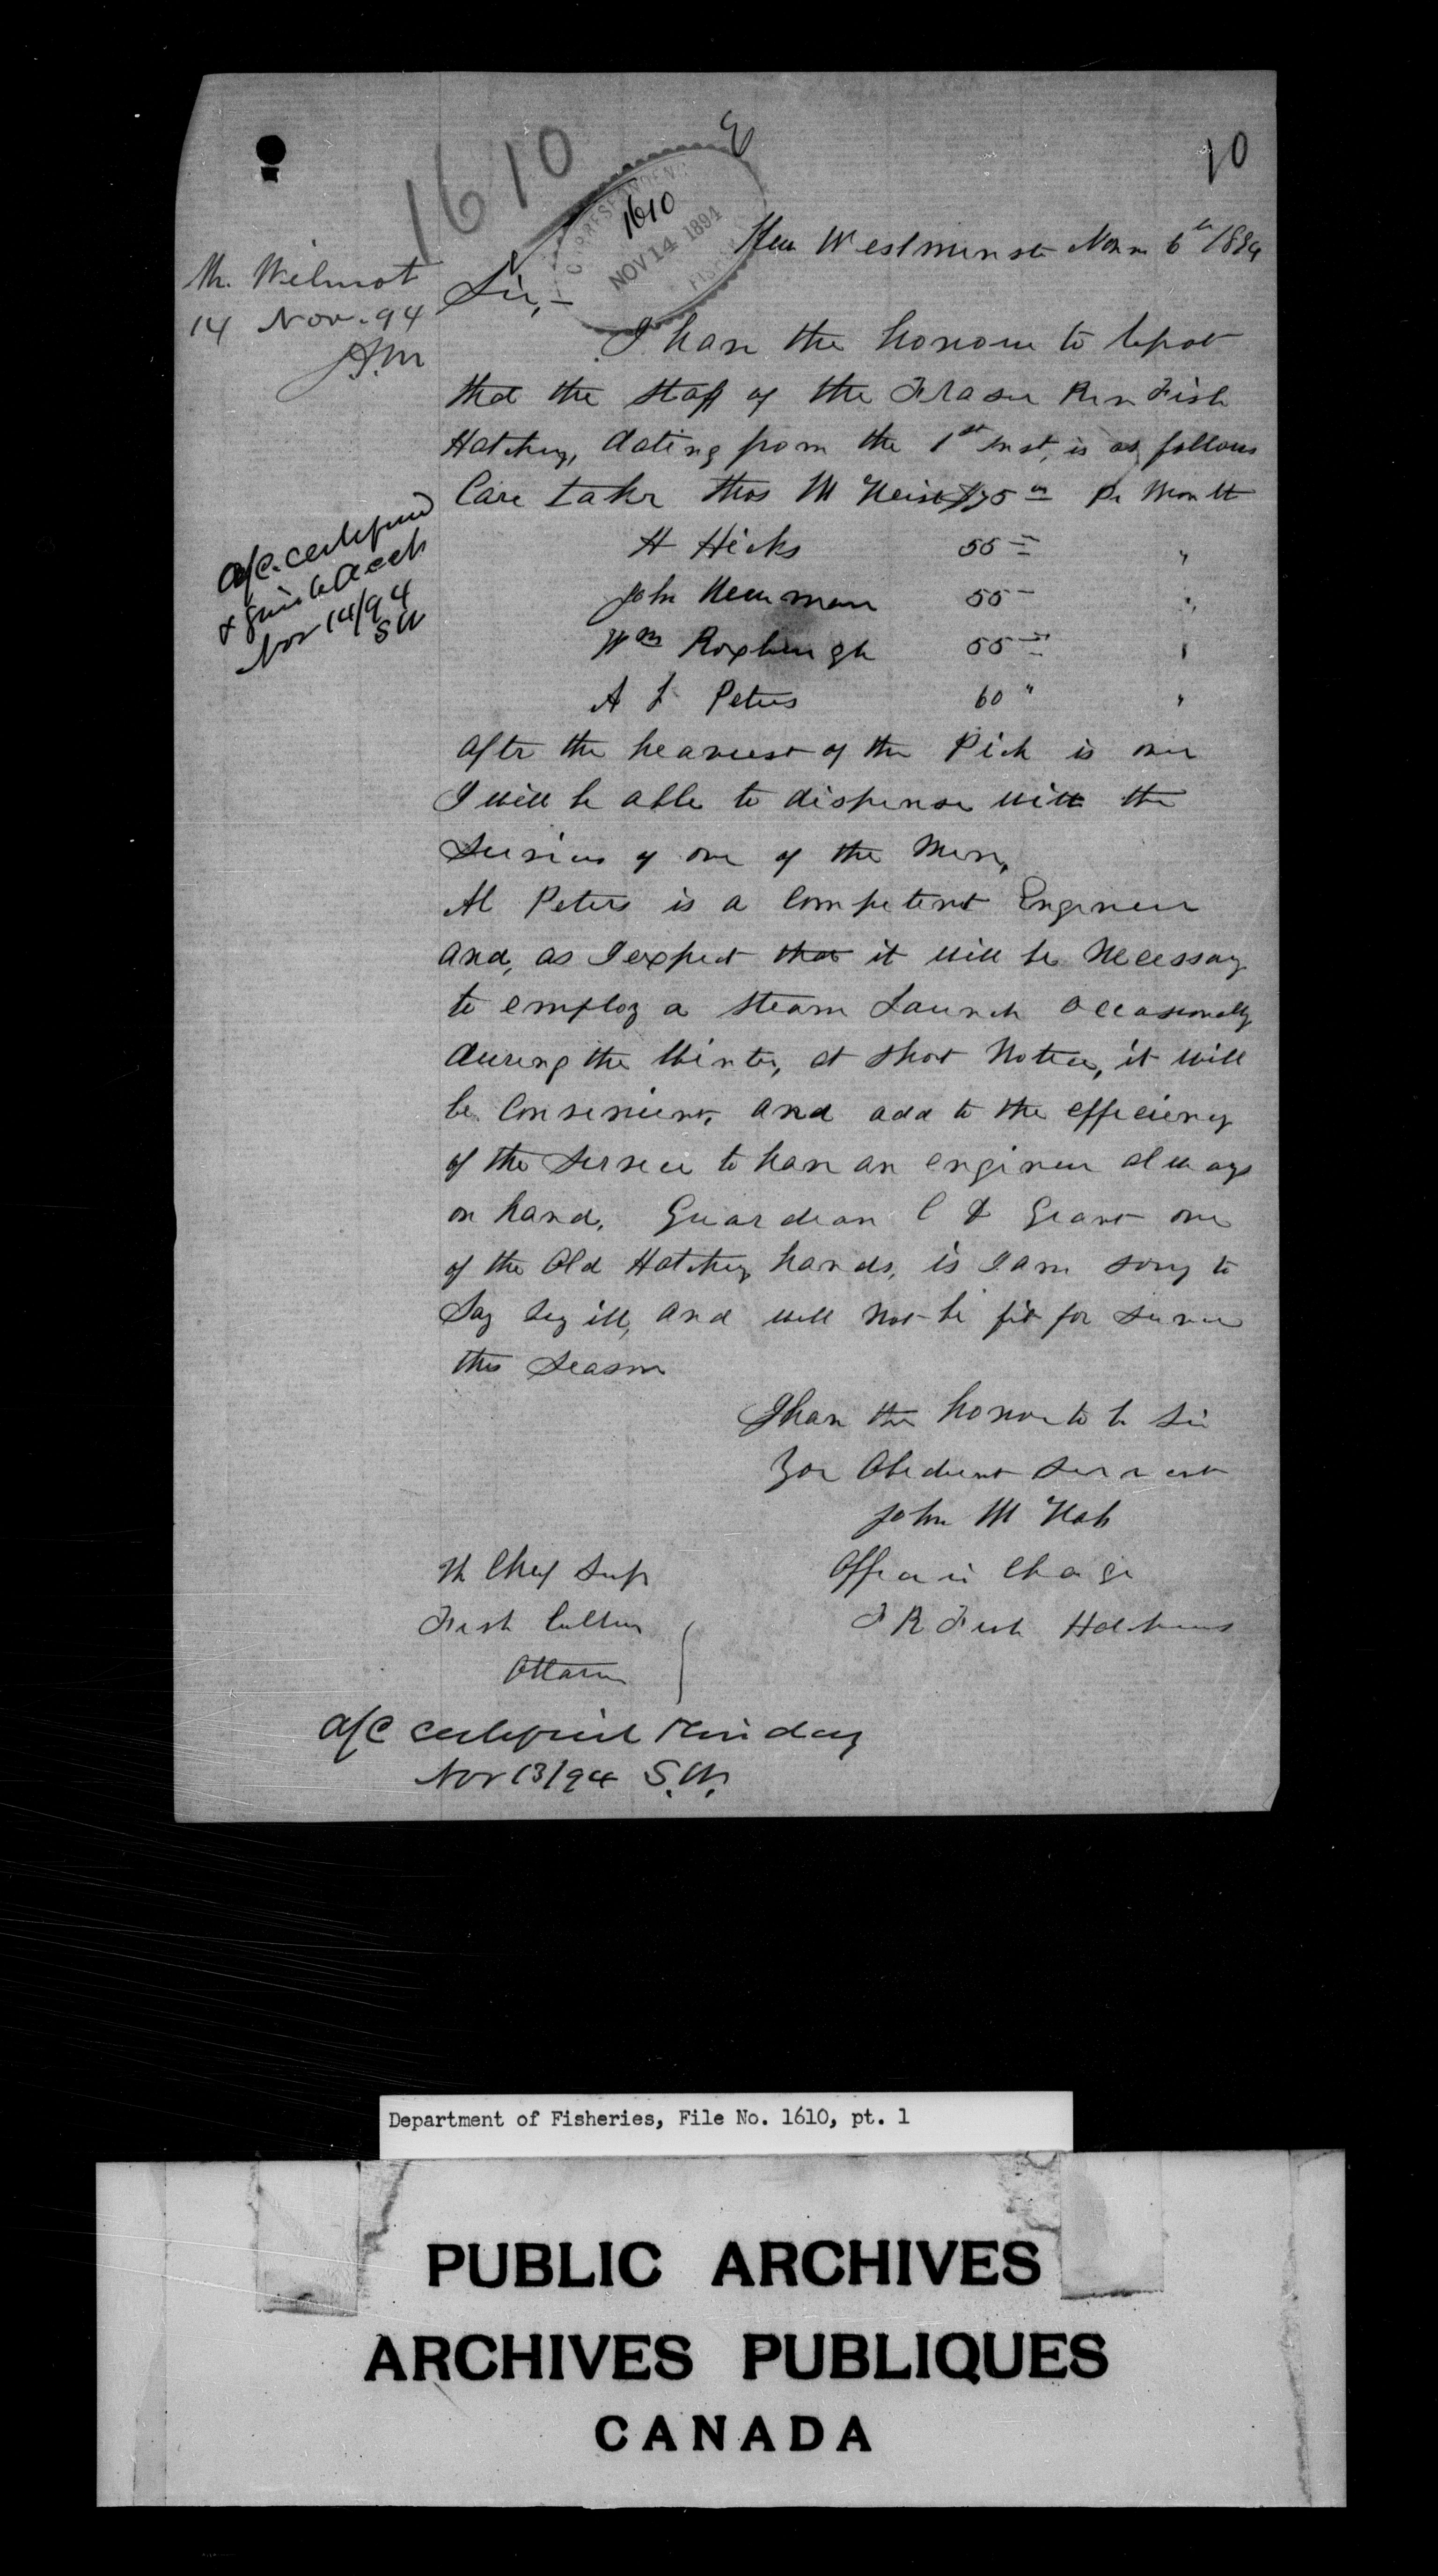 1610
10
CORRESPONDENCE
1610
NOV 14 1894
New Westminster 6th 1894
Mr. Wilmot
14 Nov. 94
Sir,—
I have the honour to report
that the staff of the Fraser River Fish
Hatchery, dating from the 1st inst, is as follows
Care taker Thos $75 Pr Month
H Hicks 55 "
John Newman 55 "
Wm Roxburgh 55 "
A L Peters 60 " "
a/c certified
Nov 14/94
SW
After the heaviest of the Pick is over
I will be able to dispense with the
Services of one of the Men,
Al Peters is a Competent Engineer
and, as I expect that it will be Necessary
to employ a steam Launch occasionally
during the Winter, at short Notice, it will
be Convenient, and add to the efficiency
of the Service to have an engineer always
on hand, Guardian C Grant one
of the Old Hatchery hands, is I am sorry to
Say very ill, and will not be fit for Service
this Season
I have the honor to be Sir
Your Obedient Servant
John McNab
Officer in Charge
F R Fish Hatcheries
The Chief Sup
Fish Culture
Ottawa
a/c certified
Nov 13/94 S.W.
Department of Fisheries, File No. 1610, pt. 1
PUBLIC ARCHIVES
ARCHIVES PUBLIQUES
CANADA